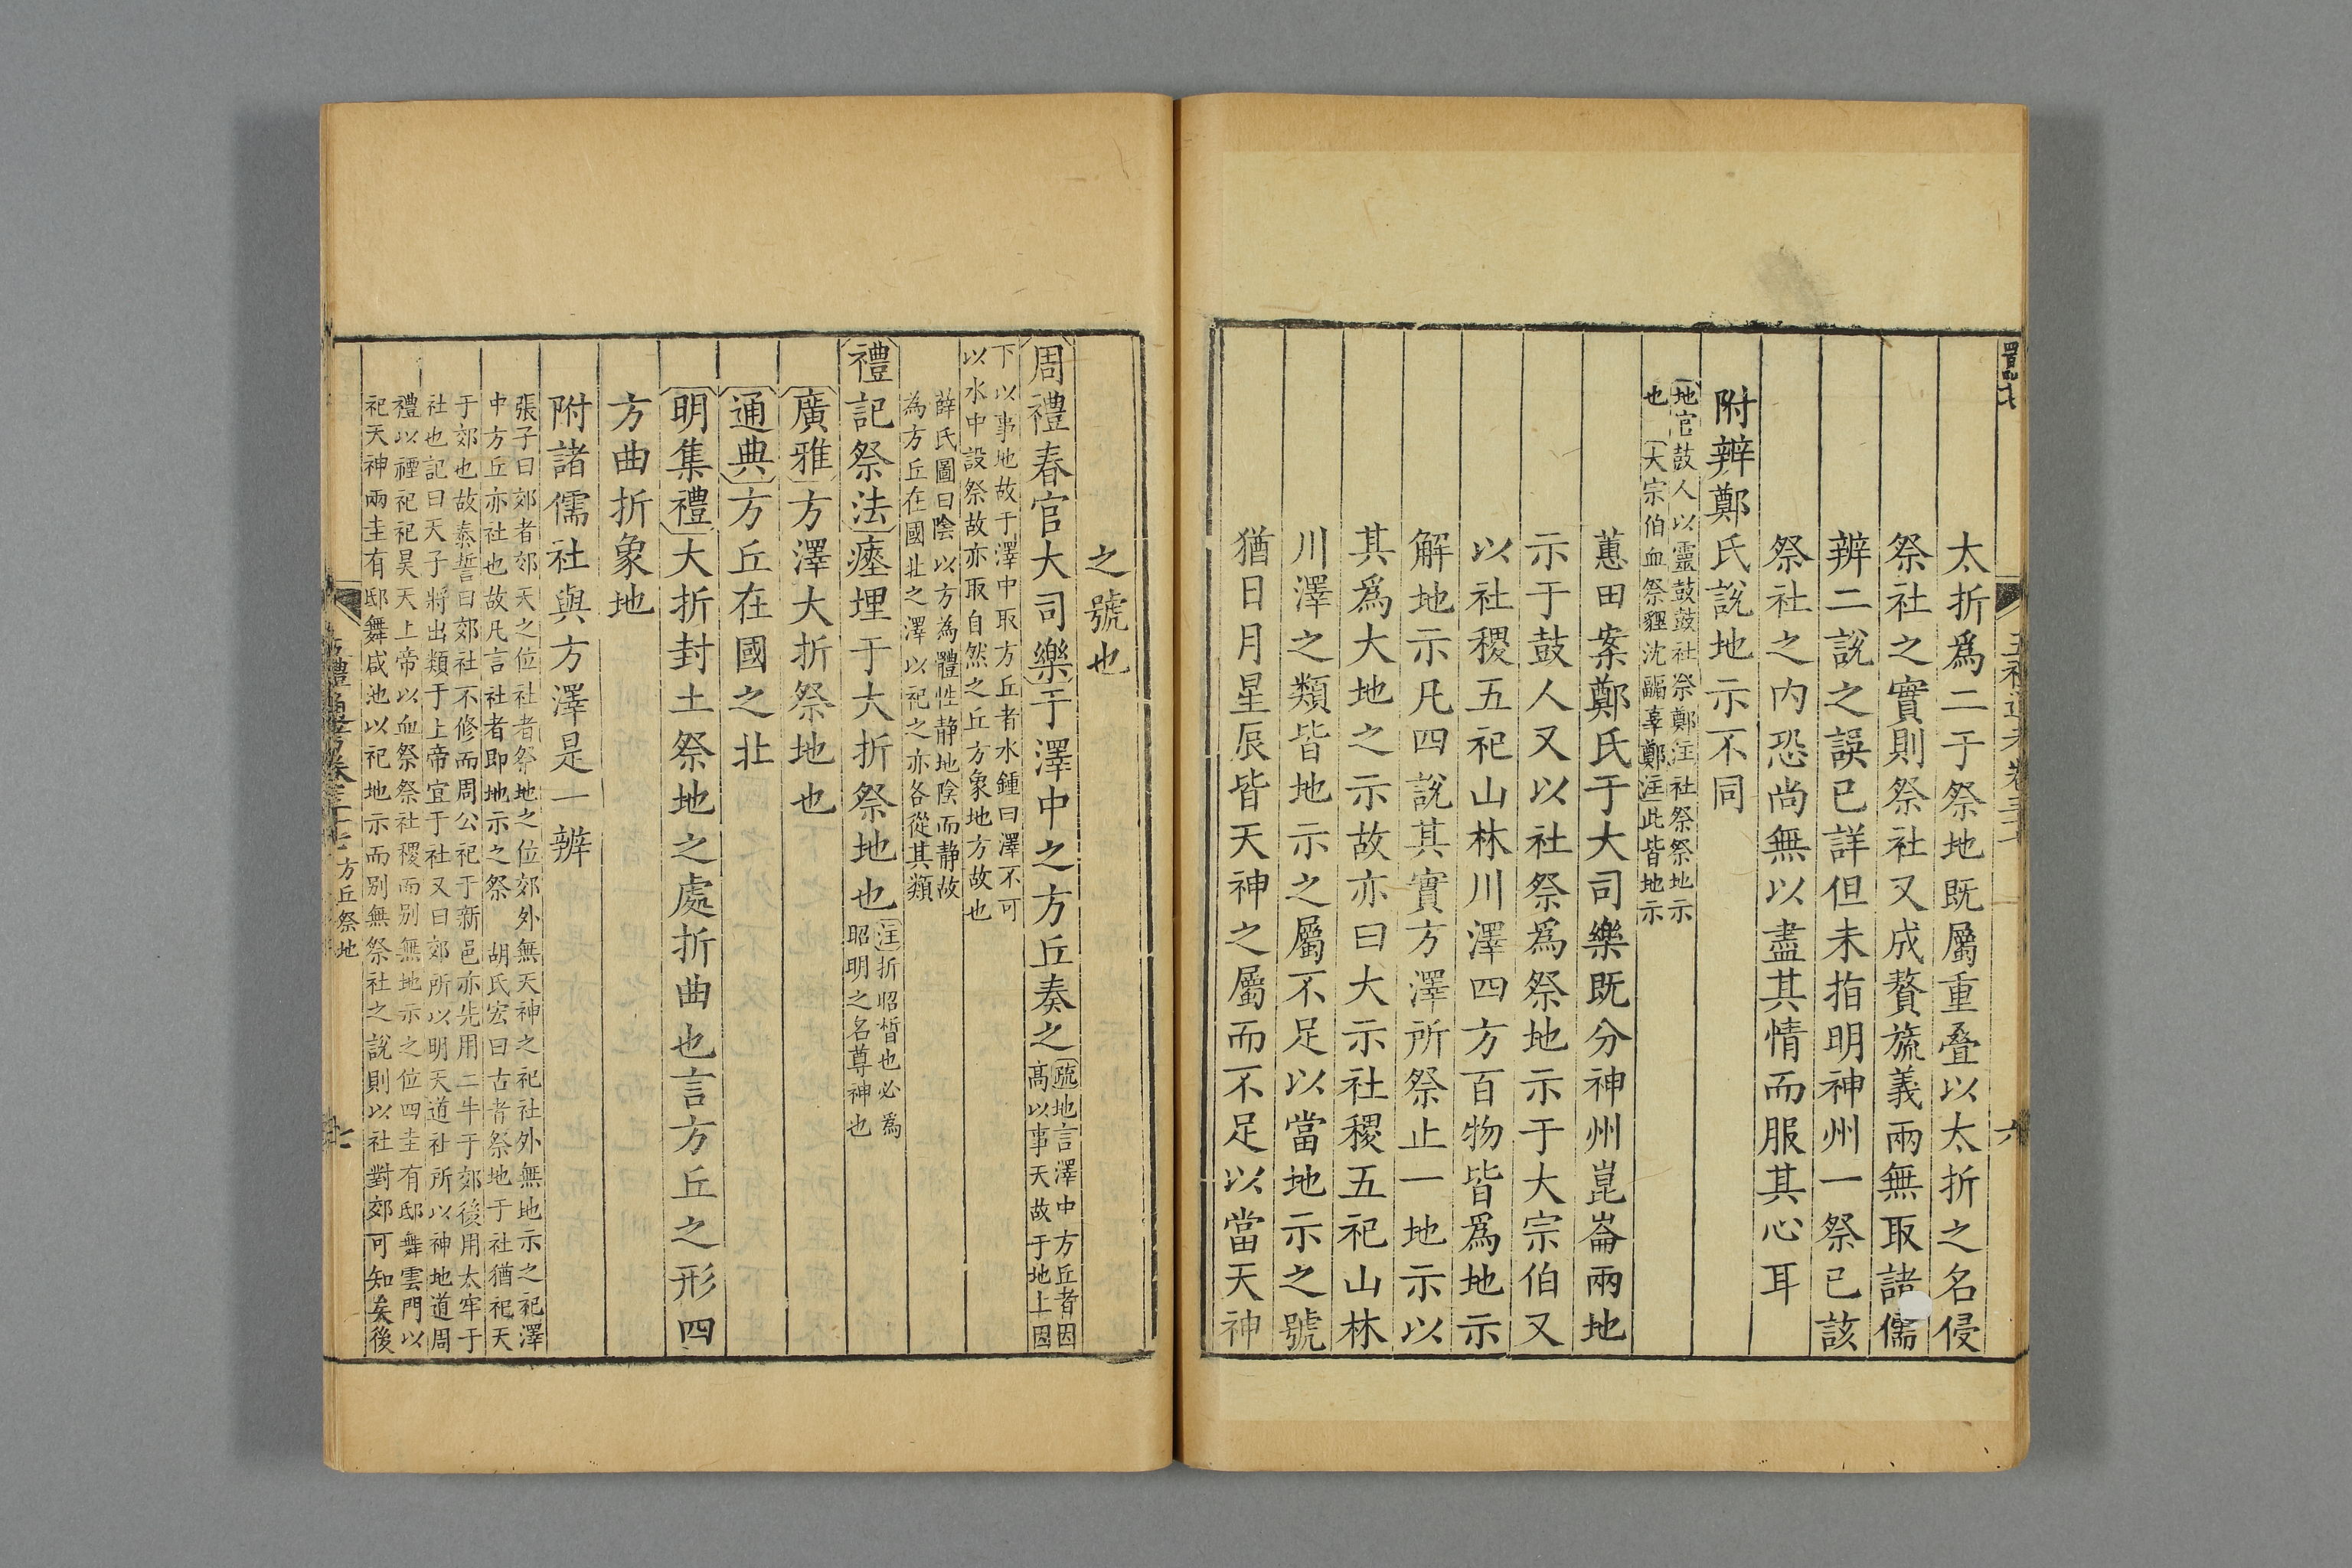 太折爲二于祭地既屬重疊以太折之名侵
祭社之實則祭社又成贅旒義兩無取諸儒
辨二說之誤已詳但未指明神州一祭已該
祭社之内恐尚無以盡其情而服其心耳
附辨鄭氏說地示不同
地官鼓人以靈鼓鼓社祭鄭注社祭祭地示
也 大宗伯血祭貍沈疈辜鄭注此皆地示
蕙田案鄭氏于大司樂既分神州崑崙兩地
示于鼓人又以社祭爲祭地示于大宗伯又
以社稷五祀山林川澤四方百物皆爲地示
解地示凡四說其實方澤所祭止一地示以
其爲大地之示故亦曰大示社稷五祀山林
川澤之類皆地示之屬不足以當地示之號
猶日月星辰皆天神之屬而不足以當天神
之號也
周禮春官大司樂于澤中之方丘奏之
疏地言澤中方丘者因
高以事天故于地上因
下以事地故于澤中取方丘者水鍾曰澤不可
以水中設祭故亦取自然之丘方象地方故也
薛氏圖曰陰以方為體性静地陰而静故
為方丘在國北之澤以祀之亦各從其類
禮記祭法瘞埋于大折祭地也
注折昭晢也必爲
昭明之名尊神也
廣雅方澤大折祭地也
通典方丘在國之北
明集禮大折封土祭地之處折曲也言方丘之形四
方曲折象地
附諸儒社與方澤是一辨
張子曰郊者郊天之位社者祭地之位郊外無天神之祀社外無地示之祀澤
中方丘亦社也故凡言社者即地示之祭 胡氏宏曰古者祭地于社猶祀天
于郊也故泰誓曰郊社不修而周公祀于新邑亦先用二牛于郊後用太牢于
社也記曰天子將出類于上帝宜于社又曰郊所以明天道社所以神地道周
禮以禋祀祀昊天上帝以血祭祭社稷而别無地示之位四圭有邸舞雲門以
祀天神兩圭有邸舞咸池以祀地示而别無祭社之說則以社對郊可知矣後
方丘祭地